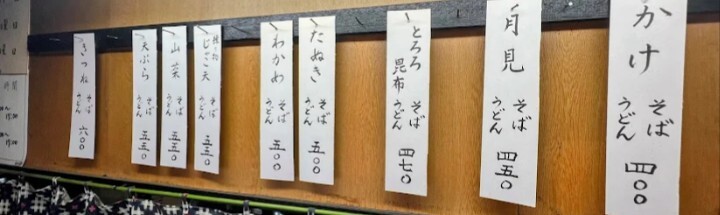 かけ
そば
うどん
四〇〇
月見
そば
うどん
四五〇
とろろ
昆布
そば
うどん
四七〇
たぬき
そば
うどん
五〇〇
わかめ
そば
うどん
五〇〇
じゃこ天
そば
うどん
五三〇
山菜
そば
うどん
五五〇
天ぷら
そば
うどん
五五〇
きつね
そば
うどん
六〇〇